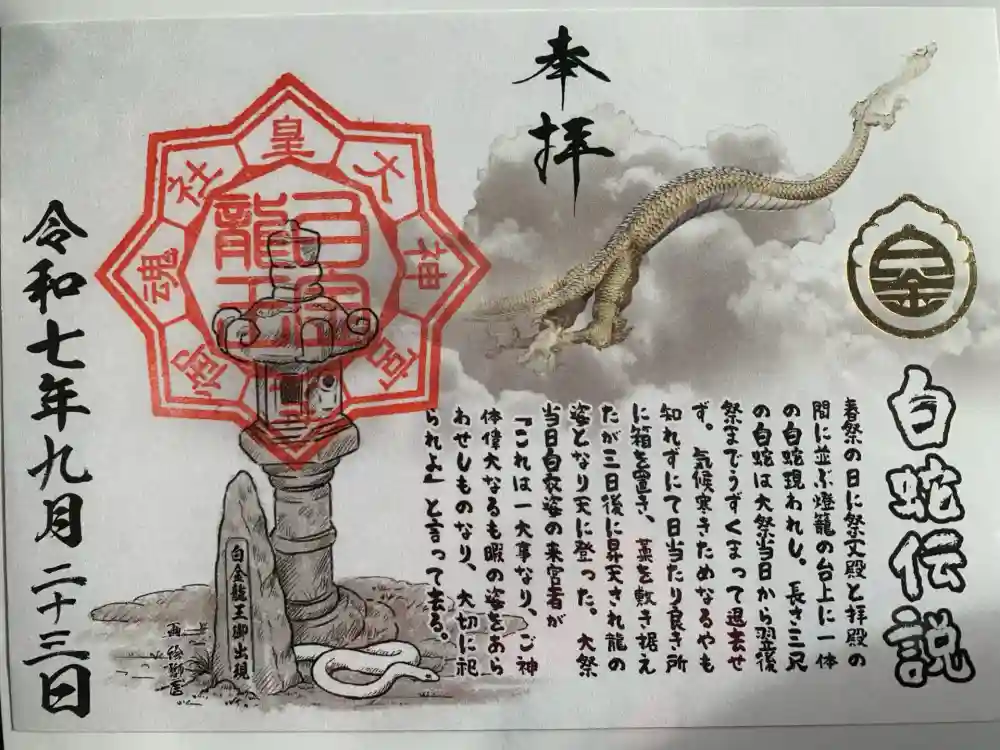 奉拝
白蛇伝説
春祭の日に祭文殿と拝殿の
間に並ぶ燈籠の台上に一体
の白蛇現われし。長さ三尺
の白蛇は大祭当日から翌後
祭までうずくまって退去せ
ず。気候寒きためなるやも
知れずにて日当たり良き所
に箱を置き、藁を敷き据え
たが三日後に昇天され龍の
姿となり天に登った。大祭
当日白衣姿の来宮者が
「これは一大事なり、ご神
体偉大なるも暇の姿をあら
わせしものなり、大切に祀
られよ」と言って去る。
皇大神宮
魂社
白金龍王
白金龍王御出現
令和七年九月二十三日